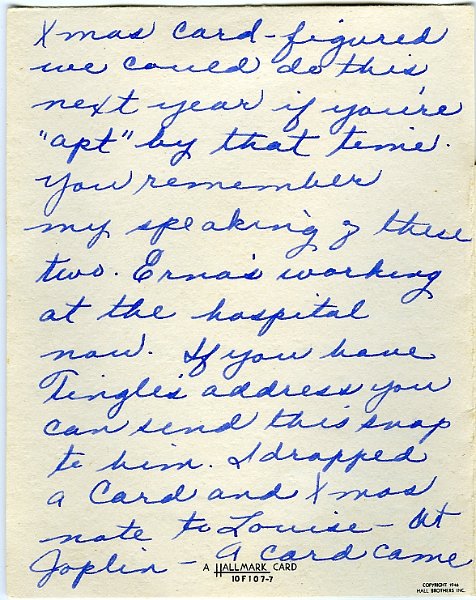 Xmas card - figured
we could do this
next year if you're
"apt" by that time.
You remember
my speaking of these
two. Erna's working
at the hospital
now. If you have
Tingle's address you
can send this snap
to him. I dropped
a Card and Xmas
note to Louise - At
Joplin - A card came
A HALLMARK CARD
10F107-7
COPYRIGHT 1946
HALL BROTHERS INC.